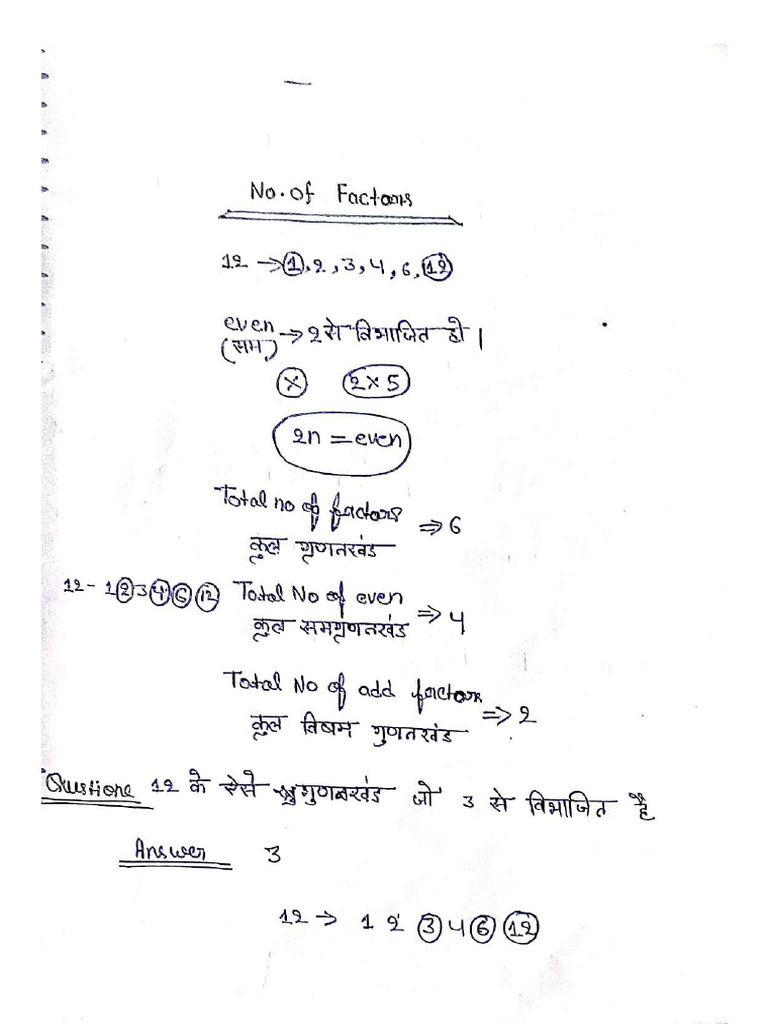 No. of Factors
12 → 1, 2, 3, 4, 6, 12
even → 2 से विभाजित हो।
(सम)
× 2 × 5
2n = even
Total no of factors
कुल गुणनखंड ⇒ 6
12 - 1 2 3 4 6 12 Total No of even
कुल समगुणनखंड ⇒ 4
Total No of add factors
कुल विषम गुणनखंड ⇒ 2
Questione 12 के ऐसे गुणनखंड जो 3 से विभाजित है
Answer 3
12 → 1 2 3 4 6 12